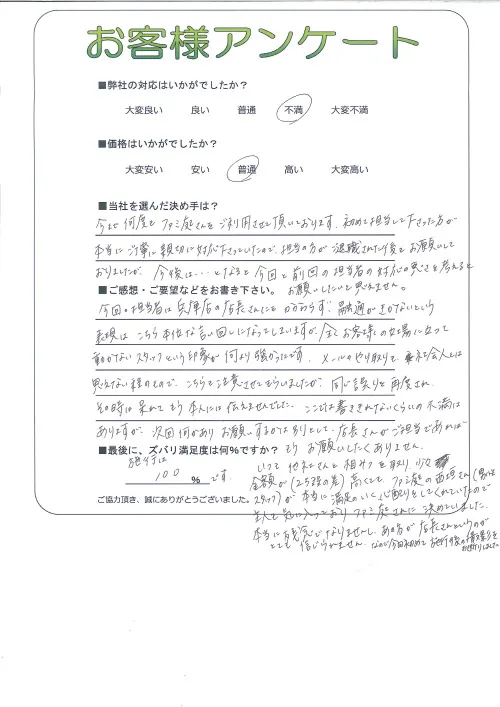 お客様アンケート
■弊社の対応はいかがでしたか？
大変良い 良い 普通 不満 大変不満
■価格はいかがでしたか？
大変安い 安い 普通 高い 大変高い
■当社を選んだ決め手は？
今まで何度もファミ庭さんをご利用させて頂いております。初めて担当して下さった方が
本当にご丁寧に親切に対応下さっていたので、担当の方が退職された後もお願いして
おりましたが、今後は…となると今回と前回の担当者の対応の悪さを考えると
お願いしたいと思えません。
■ご感想・ご要望などをお書き下さい。
今回の担当者は兵庫店の店長さんにもかかわらず、融通がきかないという
表現はこちら本位な言い回しになってしまいますが、全くお客様の立場に立って
動かないスタッフという印象が何より強かったです。メールのやり取りも、社会人とは
思えない様のもので、こちらも注意させてもらいましたが、同じ誤りを再度され、
その時は呆れてもう本人には伝えませんでした。ここでは書ききれないくらいの不満は
ありますが、次回何かありお願いするかは別として、店長さんがご担当であれば
もうお願いしたくありません。
■最後に、ズバリ満足度は何％ですか？
施行は
100 ％ です。
ご協力頂き、誠にありがとうございました。
いつも他社さんと相みつを取り、少々
金額が(2.5割の差)高くても、ファミ庭の西垣さん(男性
スタッフ)が本当に満足のいく心配りをしてくれていたので
主人も気に入っておりファミ庭さんに決めていました。
本当に残念でなりませんし、あの方が店長さんというのが
とても信じられません。なので今回初めて施行後の情景を
お断りしました